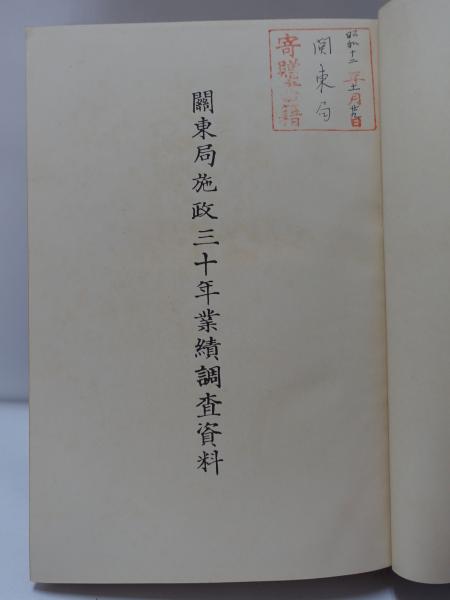 昭和十二年十一月廿九日
関東局
寄贈書籍
關東局施政三十年業績調査資料